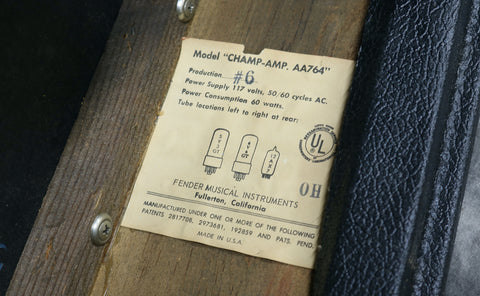 Model "CHAMP-AMP. AA764"
Production #6
Power Supply 117 volts, 50/60 cycles AC.
Power Consumption 60 watts.
Tube locations left to right at rear:
5Y3GT 6V6GT 12AX7
UL
OH
FENDER MUSICAL INSTRUMENTS
Fullerton, California
MANUFACTURED UNDER ONE OR MORE OF THE FOLLOWING
PATENTS 2817708, 2973681, 192859 AND PATS. PEND.
MADE IN U.S.A.